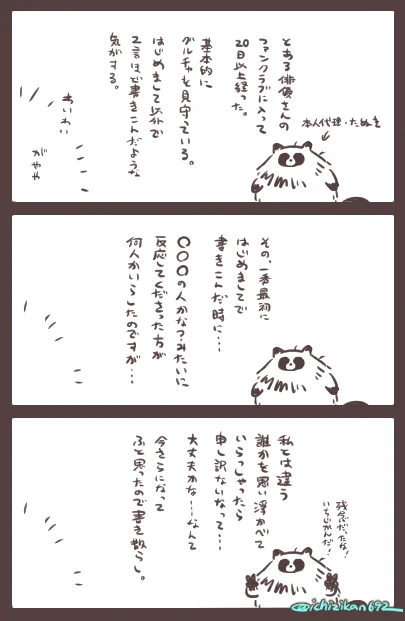 とある俳優さんの
ファンクラブに入って
20日以上経った。
基本的に
グルチャを見守っている。
はじめまして以外で
2言ほど書きこんだような
気がする。
本人代理・たぬき
わいわい
がやや
その、一番最初に
はじめましてで
書きこんだ時に…
〇〇〇の人かな?みたいに
反応してくださった方が
何人かいらしたのですが…
私とは違う
誰かを思い浮かべて
いらっしゃったら
申し訳ないなって…
大丈夫かな…なんて
今さらになって
ふと思ったので書き散らし。
残念だったな!
いちじかんだ!
@ichizikan692